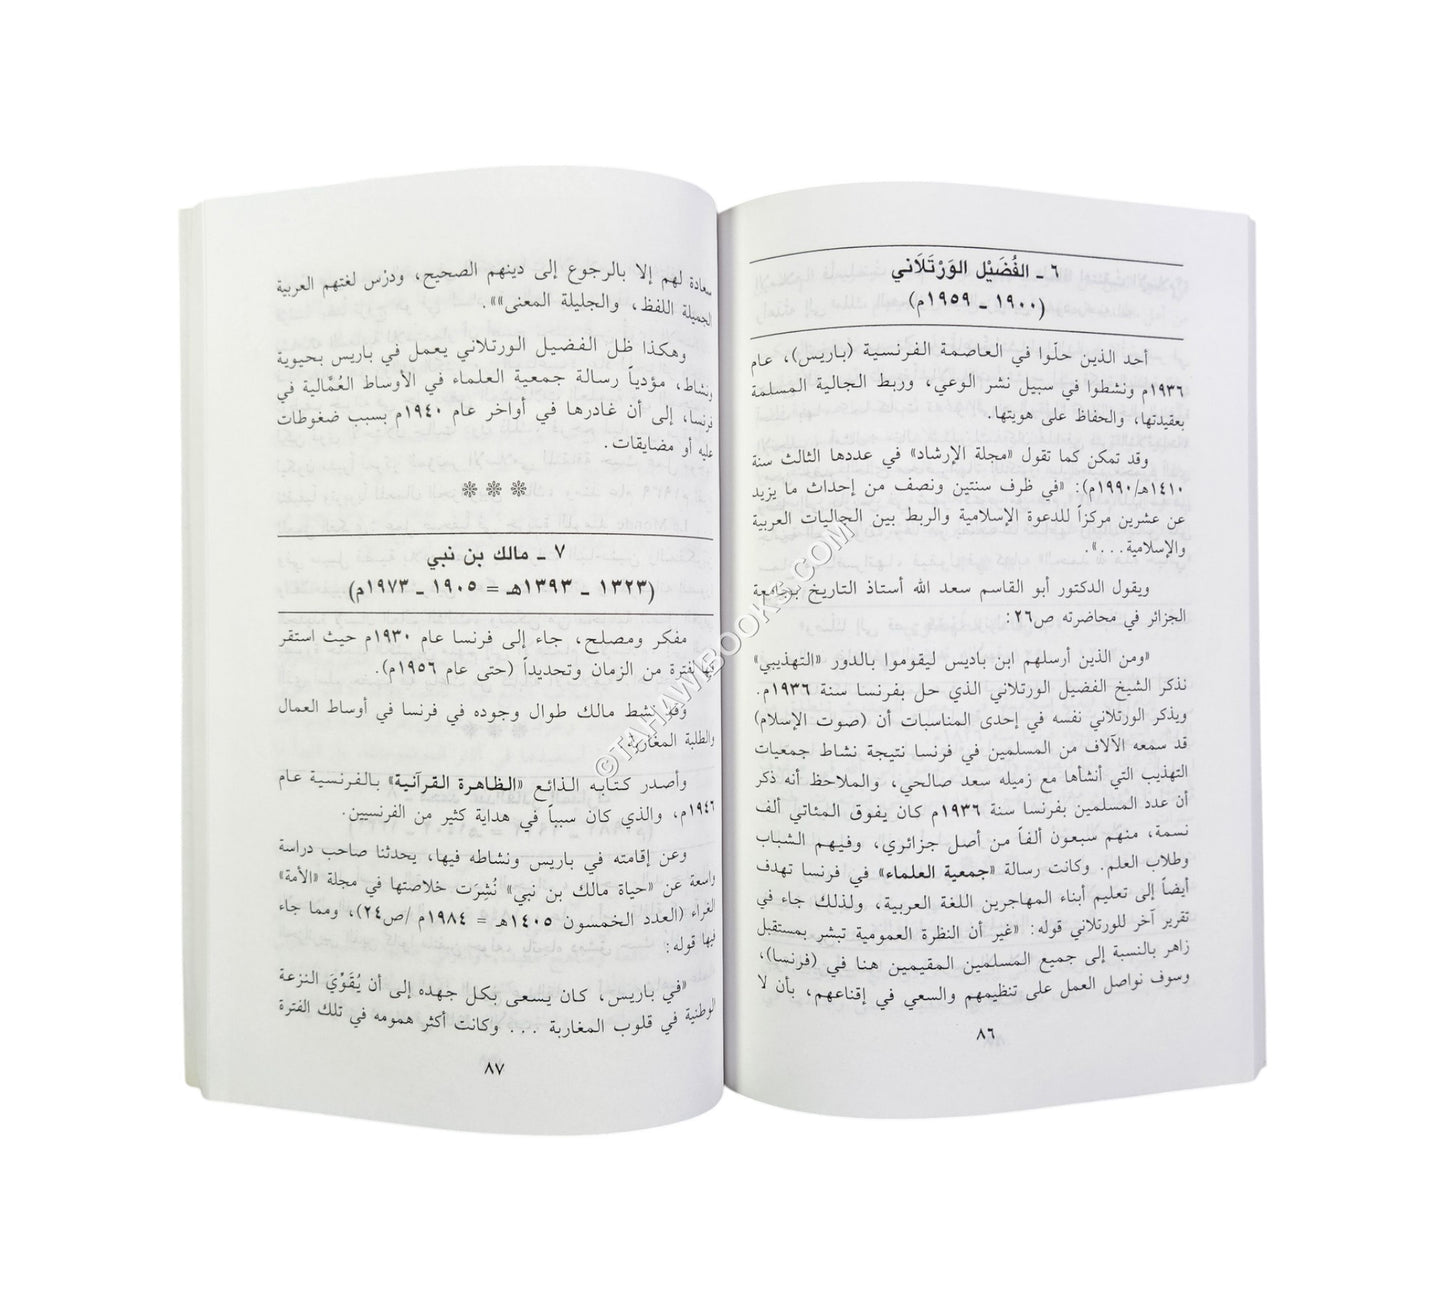 ٦ ـ الفُضَيْل الوَرْتَلاَني
(١٩٠٠ ـ ١٩٥٩م)
أحد الذين حلّوا في العاصمة الفرنسية (باريس)، عام
١٩٣٦م ونشطوا في سبيل نشر الوعي، وربط الجالية المسلمة
بعقيدتها، والحفاظ على هويتها.
وقد تمكن كما تقول «مجلة الإرشاد» في عددها الثالث سنة
١٤١٠هـ/١٩٩٠م): «في ظرف سنتين ونصف من إحداث ما يزيد
عن عشرين مركزاً للدعوة الإسلامية والربط بين الجاليات العربية
والإسلامية...».
ويقول الدكتور أبو القاسم سعد الله أستاذ التاريخ بجامعة
الجزائر في محاضرته ص٢٦:
«ومن الذين أرسلهم ابن باديس ليقوموا بالدور «التهذيبي»
نذكر الشيخ الفضيل الورتلاني الذي حل بفرنسا سنة ١٩٣٦م.
ويذكر الورتلاني نفسه في إحدى المناسبات أن (صوت الإسلام)
قد سمعه الآلاف من المسلمين في فرنسا نتيجة نشاط جمعيات
التهذيب التي أنشأها مع زميله سعد صالحي، والملاحظ أنه ذكر
أن عدد المسلمين بفرنسا سنة ١٩٣٦م كان يفوق المئاتي ألف
نسمة، منهم سبعون ألفاً من أصل جزائري، وفيهم الشباب
وطلاب العلم. وكانت رسالة «جمعية العلماء» في فرنسا تهدف
أيضاً إلى تعليم أبناء المهاجرين اللغة العربية، ولذلك جاء في
تقرير آخر للورتلاني قوله: «غير أن النظرة العمومية تبشر بمستقبل
زاهر بالنسبة إلى جميع المسلمين المقيمين هنا في (فرنسا)،
وسوف نواصل العمل على تنظيمهم والسعي في إقناعهم، بأن لا
٨٦
سعادة لهم إلا بالرجوع إلى دينهم الصحيح، ودرْس لغتهم العربية
الجميلة اللفظ، والجليلة المعنى»».
وهكذا ظل الفضيل الورتلاني يعمل في باريس بحيوية
ونشاط، مؤدياً رسالة جمعية العلماء في الأوساط العُمَّالية في
فرنسا، إلى أن غادرها في أواخر عام ١٩٤٠م بسبب ضغوطات
عليه أو مضايقات.
٧ ـ مالك بن نبي
(١٣٢٣ ـ ١٣٩٣هـ = ١٩٠٥ ـ ١٩٧٣م)
مفكر ومصلح، جاء إلى فرنسا عام ١٩٣٠م حيث استقر
بها لفترة من الزمان وتحديداً (حتى عام ١٩٥٦م).
وقد نشط مالك طوال وجوده في فرنسا في أوساط العمال
والطلبة المغاربة.
وأصدر كتابه الذائع «الظاهرة القرآنية» بالفرنسية عام
١٩٤٦م، والذي كان سبباً في هداية كثير من الفرنسيين.
وعن إقامته في باريس ونشاطه فيها، يحدثنا صاحب دراسة
واسعة عن «حياة مالك بن نبي» نُشِرَت خلاصتها في مجلة «الأمة»
الغراء (العدد الخمسون ١٤٠٥هـ = ١٩٨٤م /ص٢٤)، ومما جاء
فيها قوله:
«في باريس، كان يسعى بكل جهده إلى أن يُقَوِّيَ النزعة
الوطنية في قلوب المغاربة ... وكانت أكثر همومه في تلك الفترة
٨٧
©TAHAWIBOOKS.COM